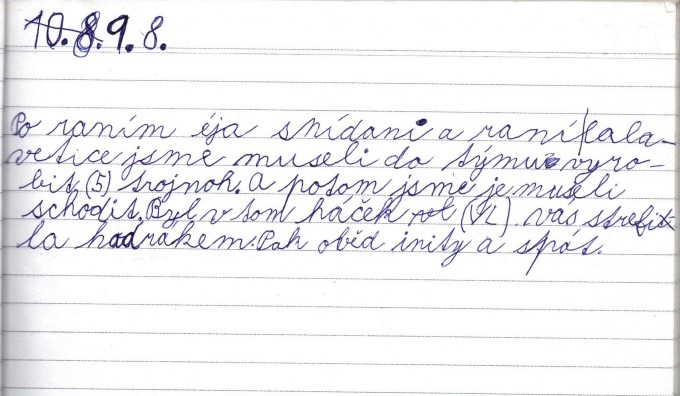 10.8. 9. 8.
Po raním éja snídani a raní lala-
vetice jsme museli do týmu vyro-
bit (5) trojnoh. A potom jsme je museli
schodit. Byl v tom háček (VL) vás strefi
la hadrákem. Pak oběd inity a spát.